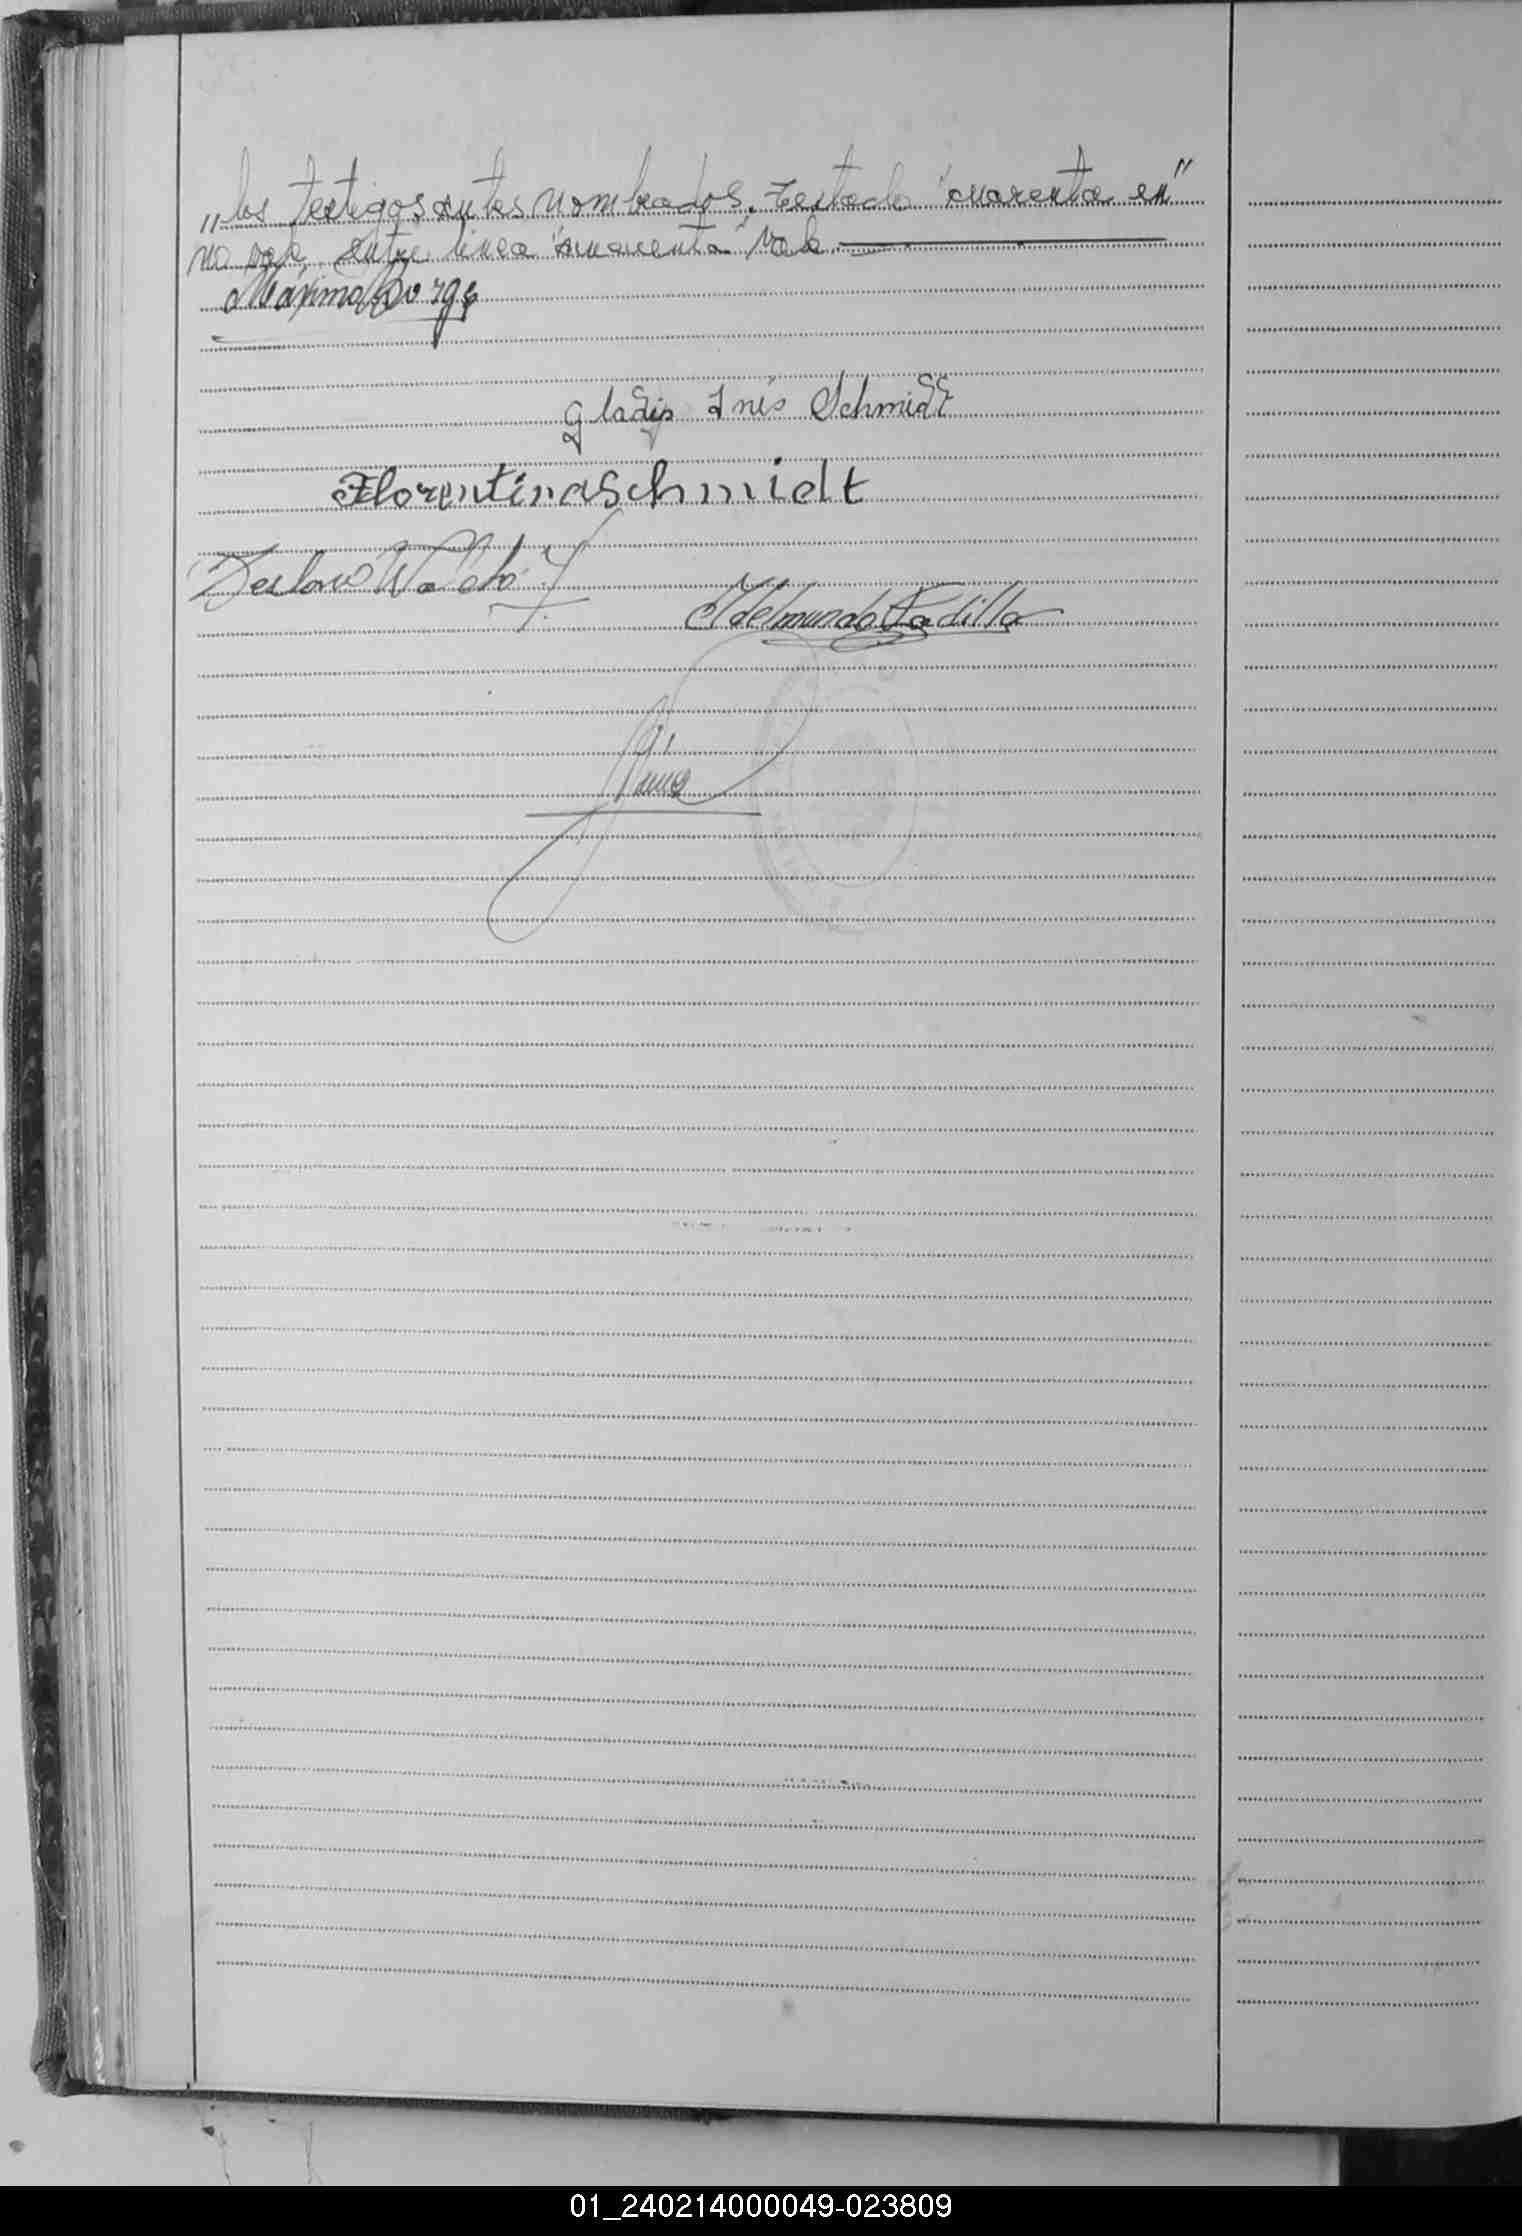 „los testigos antes nombrados. Testado "cuarenta en"
no vale. Entre linea "cincuenta" vale.
Máximo Borge
Gladys Inés Schmidt
Florentina Schmidt
Idelmundo Padilla
01_240214000049-023809